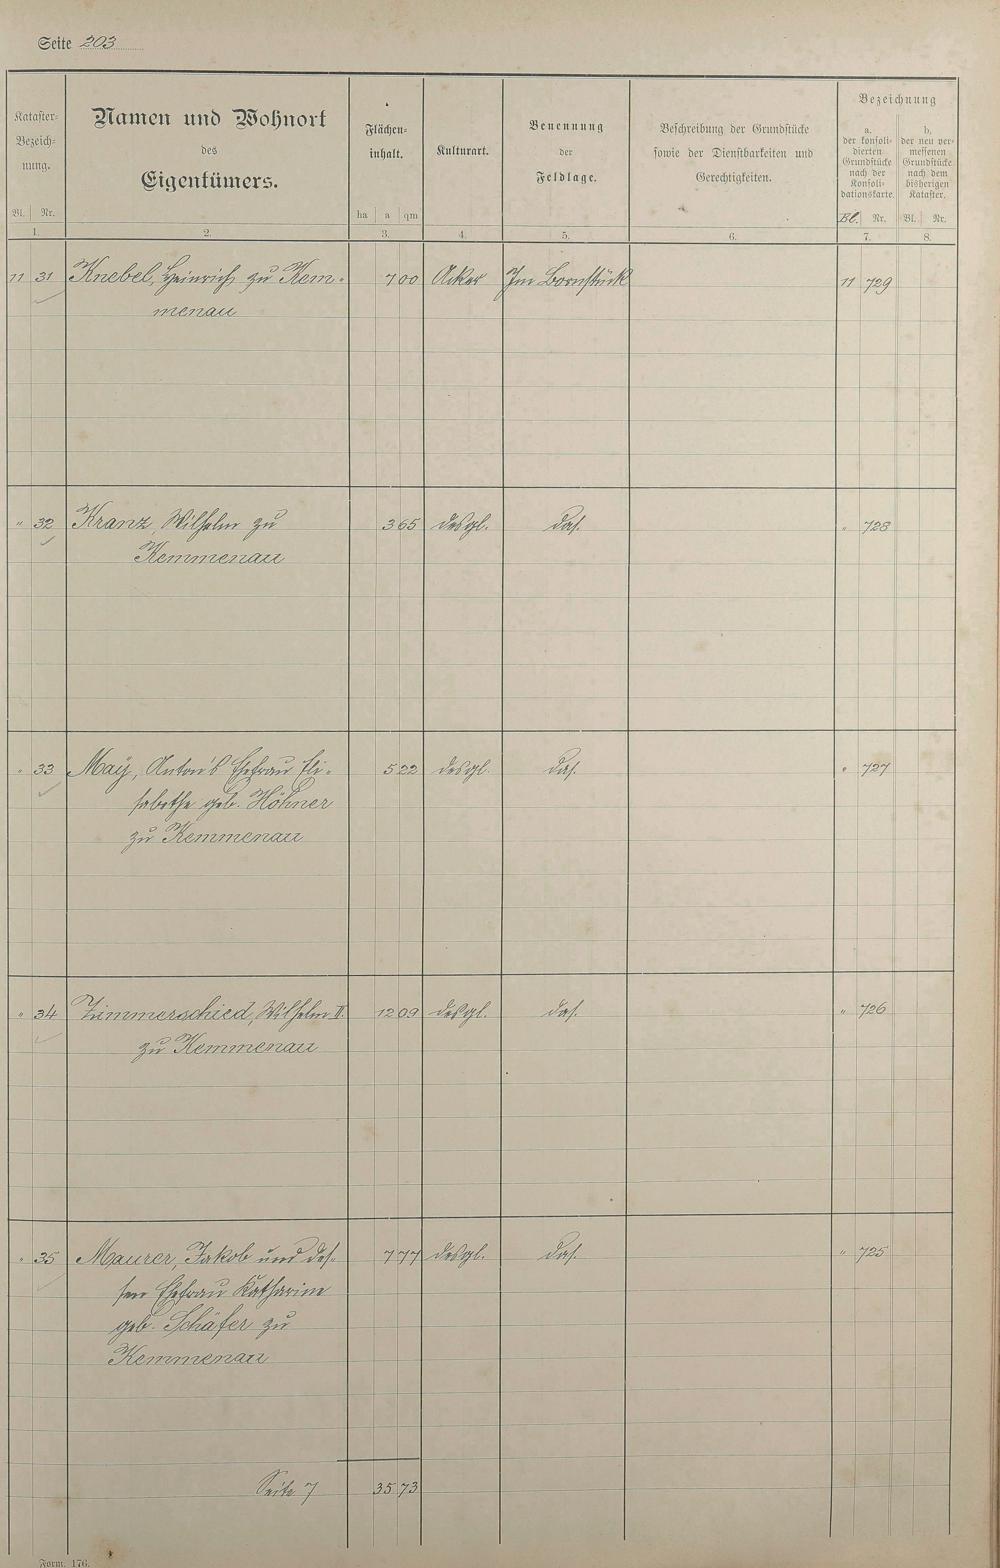 Seite 203
Kataster-Bezeichnung.
Namen und Wohnort
des
Eigentümers.
Flächeninhalt.
Kulturart.
Benennung
der
Feldlage.
Beschreibung der Grundstücke
sowie der Dienstbarkeiten und
Gerechtigkeiten.
Bezeichnung
a.
der konsoli-
dierten
Grundstücke
nach der
Konsoli-
dationskarte.
b.
der neu ver-
messenen
Grundstücke
nach dem
bisherigen
Kataster.
Bl. Nr. ha a qm Bl. Nr. Bl. Nr.
1. 2. 3. 4. 5. 6. 7. 8.
11 31 Knebel, Heinrich zu Kem- 7 00 Acker Im Bornstück 11 729
menau
" 32 Kranz Wilhelm zu 3 65 desgl. das. " 728
Kemmenau
" 33 Maÿ, Anton's Ehefrau Eli- 5 22 desgl. das. " 727
sabethe geb. Höhner
zu Kemmenau
" 34 Zimmerschied, Wilhelm II. 12 09 desgl. das. " 726
zu Kemmenau
" 35 Maurer, Jakob und des- 7 77 desgl. das. " 725
sen Ehefrau Katharine
geb. Schäfer zu
Kemmenau
Seite 7 35 73
Form. 176.